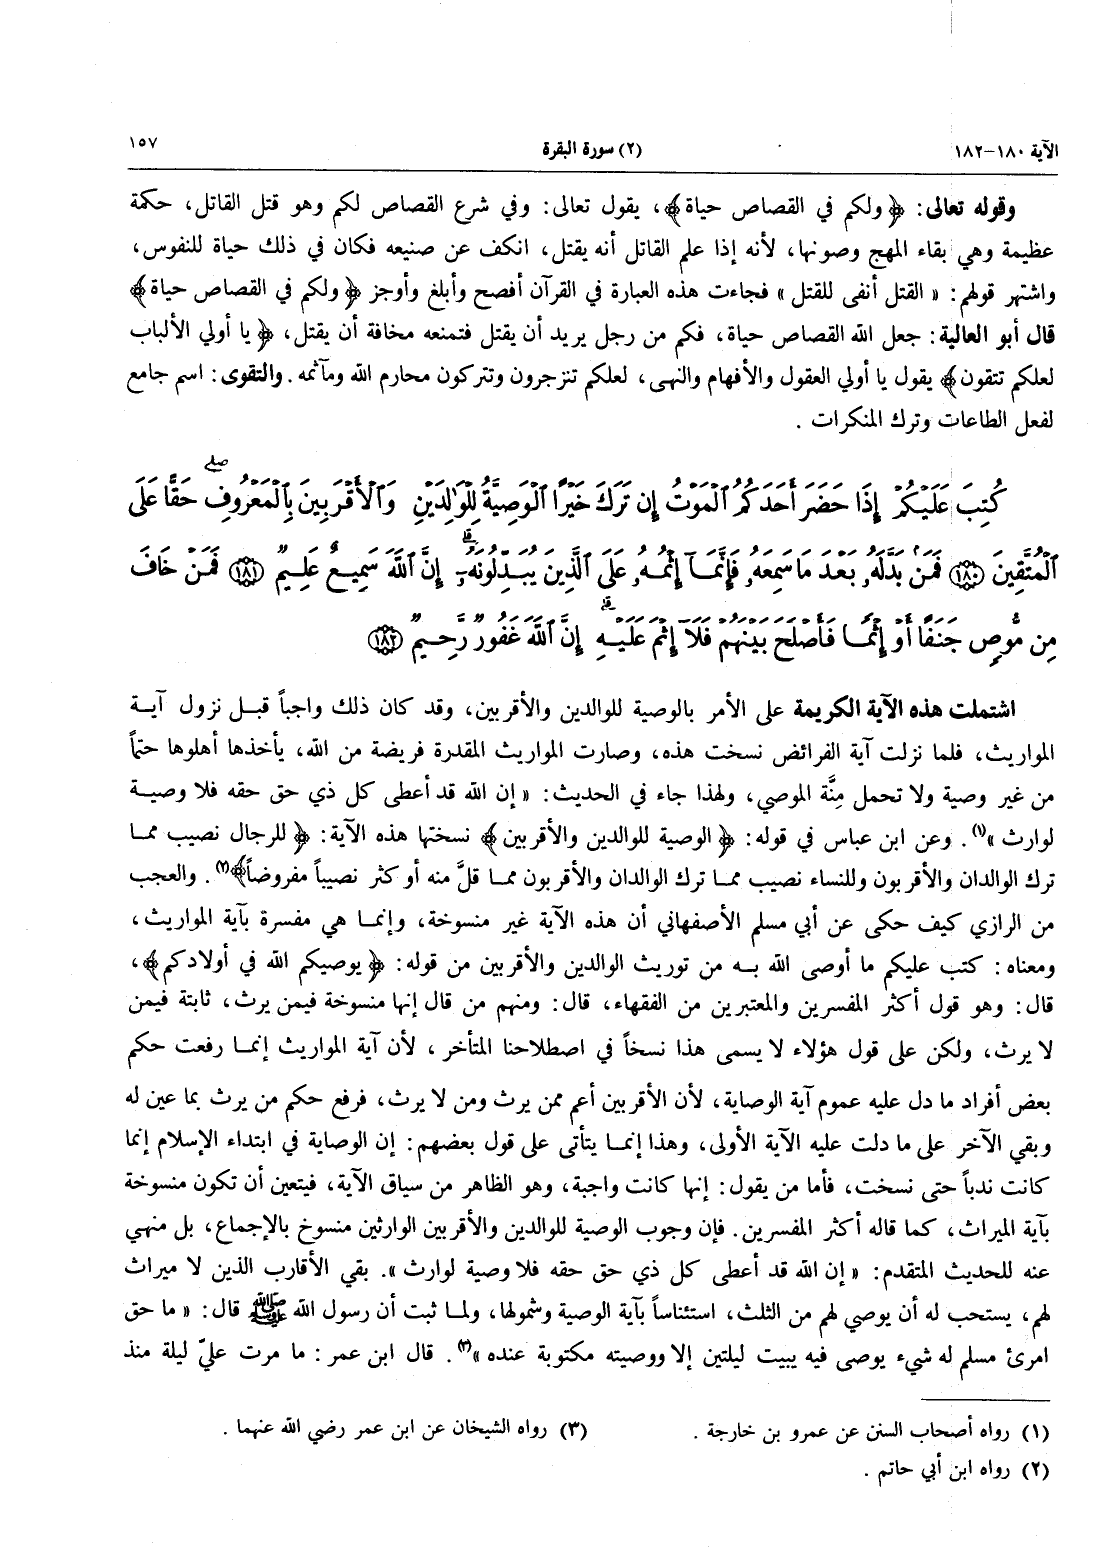 الآية ١٨٠-١٨٢ (٢) سورة البقرة ١٥٧
وقوله تعالى: ﴿ولكم في القصاص حياة﴾، يقول تعالى: وفي شرع القصاص لكم وهو قتل القاتل، حكمة
عظيمة وهي بقاء المهج وصونها، لأنه إذا علم القاتل أنه يقتل، انكف عن صنيعه فكان في ذلك حياة للنفوس،
واشتهر قولهم: « القتل أنفى للقتل » فجاءت هذه العبارة في القرآن أفصح وأبلغ وأوجز ﴿ولكم في القصاص حياة﴾
قال أبو العالية: جعل الله القصاص حياة، فكم من رجل يريد أن يقتل فتمنعه مخافة أن يقتل، ﴿يا أولي الألباب
لعلكم تتقون﴾ يقول يا أولي العقول والأفهام والنهى، لعلكم تنزجرون وتتركون محارم الله ومآثمه. والتقوى: اسم جامع
لفعل الطاعات وترك المنكرات .
كُتِبَ عَلَيْكُمْ إِذَا حَضَرَ أَحَدَكُمُ ٱلْمَوْتُ إِن تَرَكَ خَيْرًا ٱلْوَصِيَّةُ لِلْوَٰلِدَيْنِ وَٱلْأَقْرَبِينَ بِٱلْمَعْرُوفِ ۖ حَقًّا عَلَى
ٱلْمُتَّقِينَ ﴿١٨٠﴾ فَمَنۢ بَدَّلَهُۥ بَعْدَ مَا سَمِعَهُۥ فَإِنَّمَآ إِثْمُهُۥ عَلَى ٱلَّذِينَ يُبَدِّلُونَهُۥٓ ۚ إِنَّ ٱللَّهَ سَمِيعٌ عَلِيمٌ ﴿١٨١﴾ فَمَنْ خَافَ
مِن مُّوصٍ جَنَفًا أَوْ إِثْمًا فَأَصْلَحَ بَيْنَهُمْ فَلَآ إِثْمَ عَلَيْهِ ۚ إِنَّ ٱللَّهَ غَفُورٌ رَّحِيمٌ ﴿١٨٢﴾
اشتملت هذه الآية الكريمة على الأمر بالوصية للوالدين والأقربين، وقد كان ذلك واجباً قبل نزول آية
المواريث، فلما نزلت آية الفرائض نسخت هذه، وصارت المواريث المقدرة فريضة من الله، يأخذها أهلوها حتماً
من غير وصية ولا تحمل مِنَّة الموصي، ولهذا جاء في الحديث: « إن الله قد أعطى كل ذي حق حقه فلا وصية
لوارث »(١). وعن ابن عباس في قوله: ﴿الوصية للوالدين والأقربين﴾ نسختها هذه الآية: ﴿للرجال نصيب مما
ترك الوالدان والأقربون وللنساء نصيب مما ترك الوالدان والأقربون مما قلَّ منه أو كثر نصيباً مفروضاً﴾(٢). والعجب
من الرازي كيف حكى عن أبي مسلم الأصفهاني أن هذه الآية غير منسوخة، وإنما هي مفسرة بآية المواريث،
ومعناه: كتب عليكم ما أوصى الله به من توريث الوالدين والأقربين من قوله: ﴿يوصيكم الله في أولادكم﴾،
قال: وهو قول أكثر المفسرين والمعتبرين من الفقهاء، قال: ومنهم من قال إنها منسوخة فيمن يرث، ثابتة فيمن
لا يرث، ولكن على قول هؤلاء لا يسمى هذا نسخاً في اصطلاحنا المتأخر، لأن آية المواريث إنما رفعت حكم
بعض أفراد ما دل عليه عموم آية الوصاية، لأن الأقربين أعم ممن يرث ومن لا يرث، فرفع حكم من يرث بما عين له
وبقي الآخر على ما دلت عليه الآية الأولى، وهذا إنما يتأتى على قول بعضهم: إن الوصاية في ابتداء الإسلام إنما
كانت ندباً حتى نسخت، فأما من يقول: إنها كانت واجبة، وهو الظاهر من سياق الآية، فيتعين أن تكون منسوخة
بآية الميراث، كما قاله أكثر المفسرين. فإن وجوب الوصية للوالدين والأقربين الوارثين منسوخ بالإجماع، بل منهي
عنه للحديث المتقدم: « إن الله قد أعطى كل ذي حق حقه فلا وصية لوارث ». بقي الأقارب الذين لا ميراث
لهم، يستحب له أن يوصي لهم من الثلث، استئناساً بآية الوصية وشمولها، ولما ثبت أن رسول الله ﷺ قال: « ما حق
امرئ مسلم له شيء يوصى فيه يبيت ليلتين إلا ووصيته مكتوبة عنده »(٣). قال ابن عمر: ما مرت عليّ ليلة منذ
(١) رواه أصحاب السنن عن عمرو بن خارجة .
(٢) رواه ابن أبي حاتم .
(٣) رواه الشيخان عن ابن عمر رضي الله عنهما .